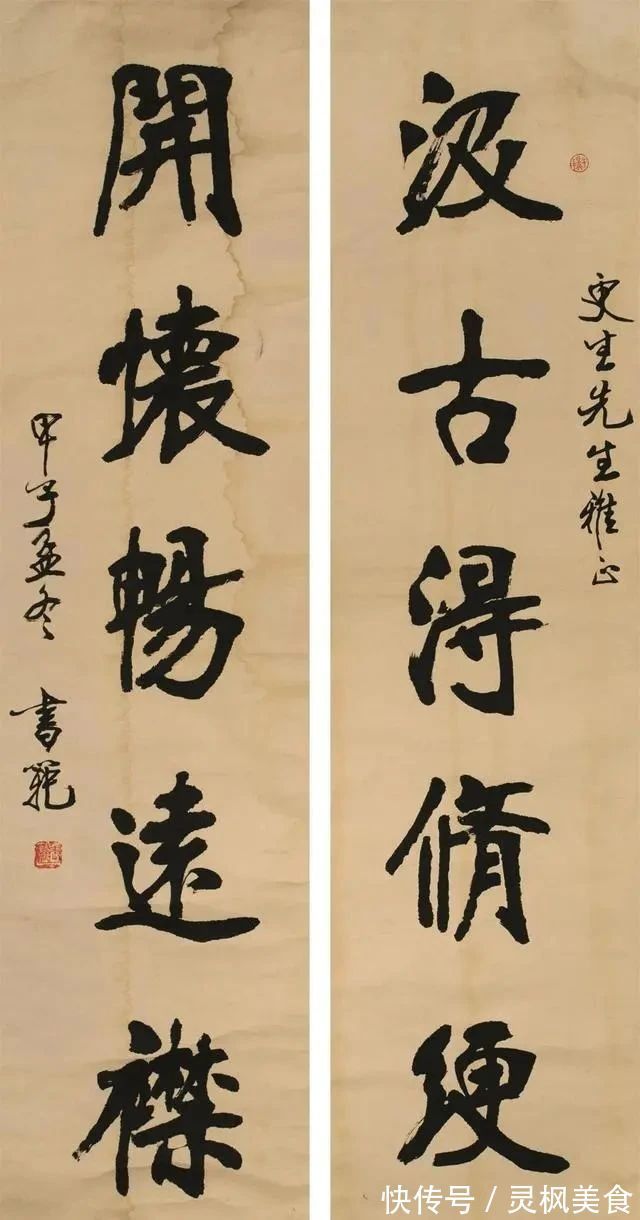 更生先生雅正
汲古得脩綆
開懷暢遠襟
甲子孟冬 書範
快传号／灵枫美食